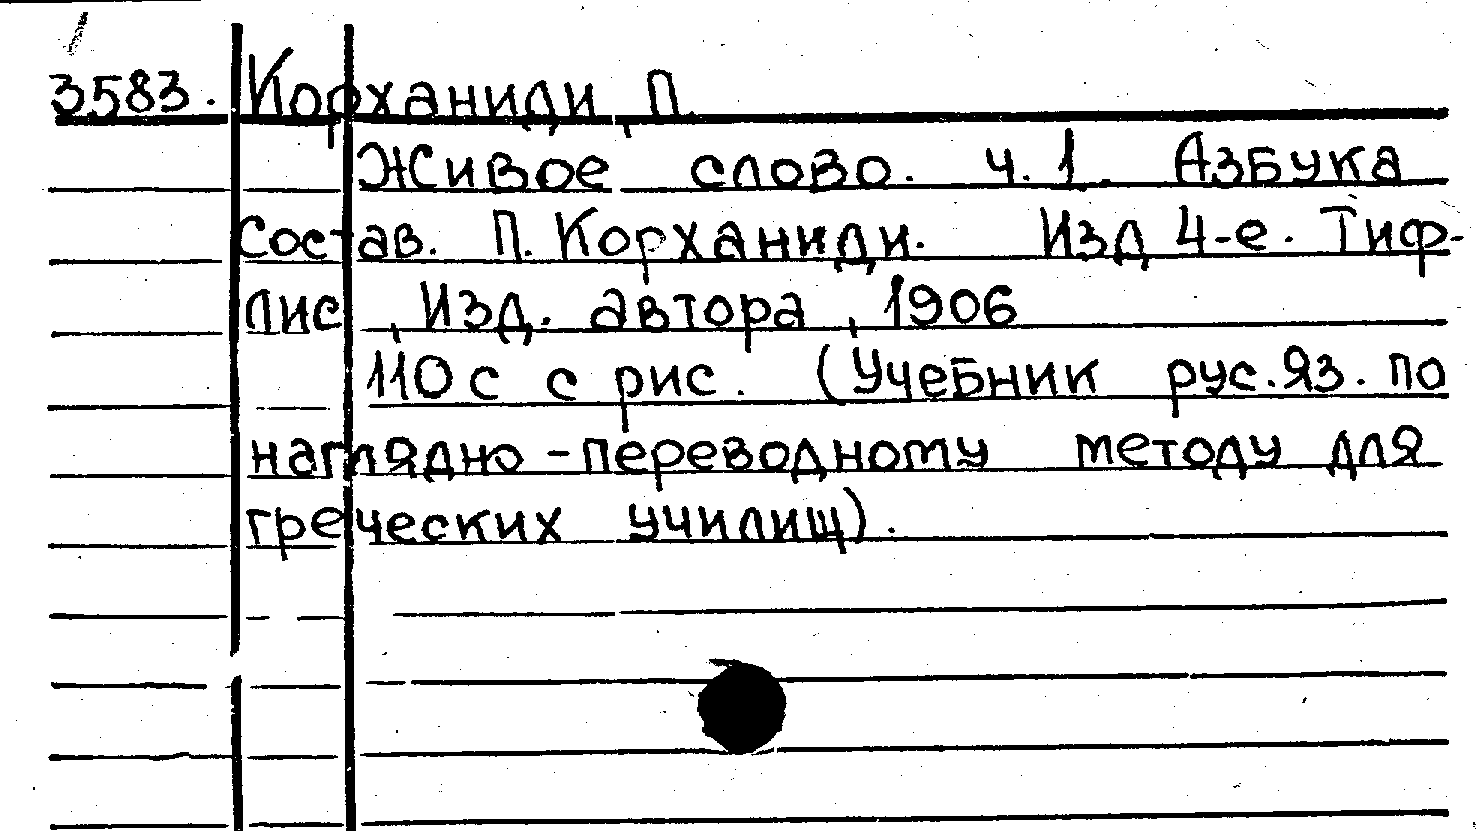 3583. Корханиди, П.
Живое слово. ч. 1. Азбука
Состав. П. Корханиди. Изд 4-е. Тиф-
лис, Изд. автора, 1906
110 с с рис. (Учебник рус. яз. по
наглядно-переводному методу для
греческих училищ).